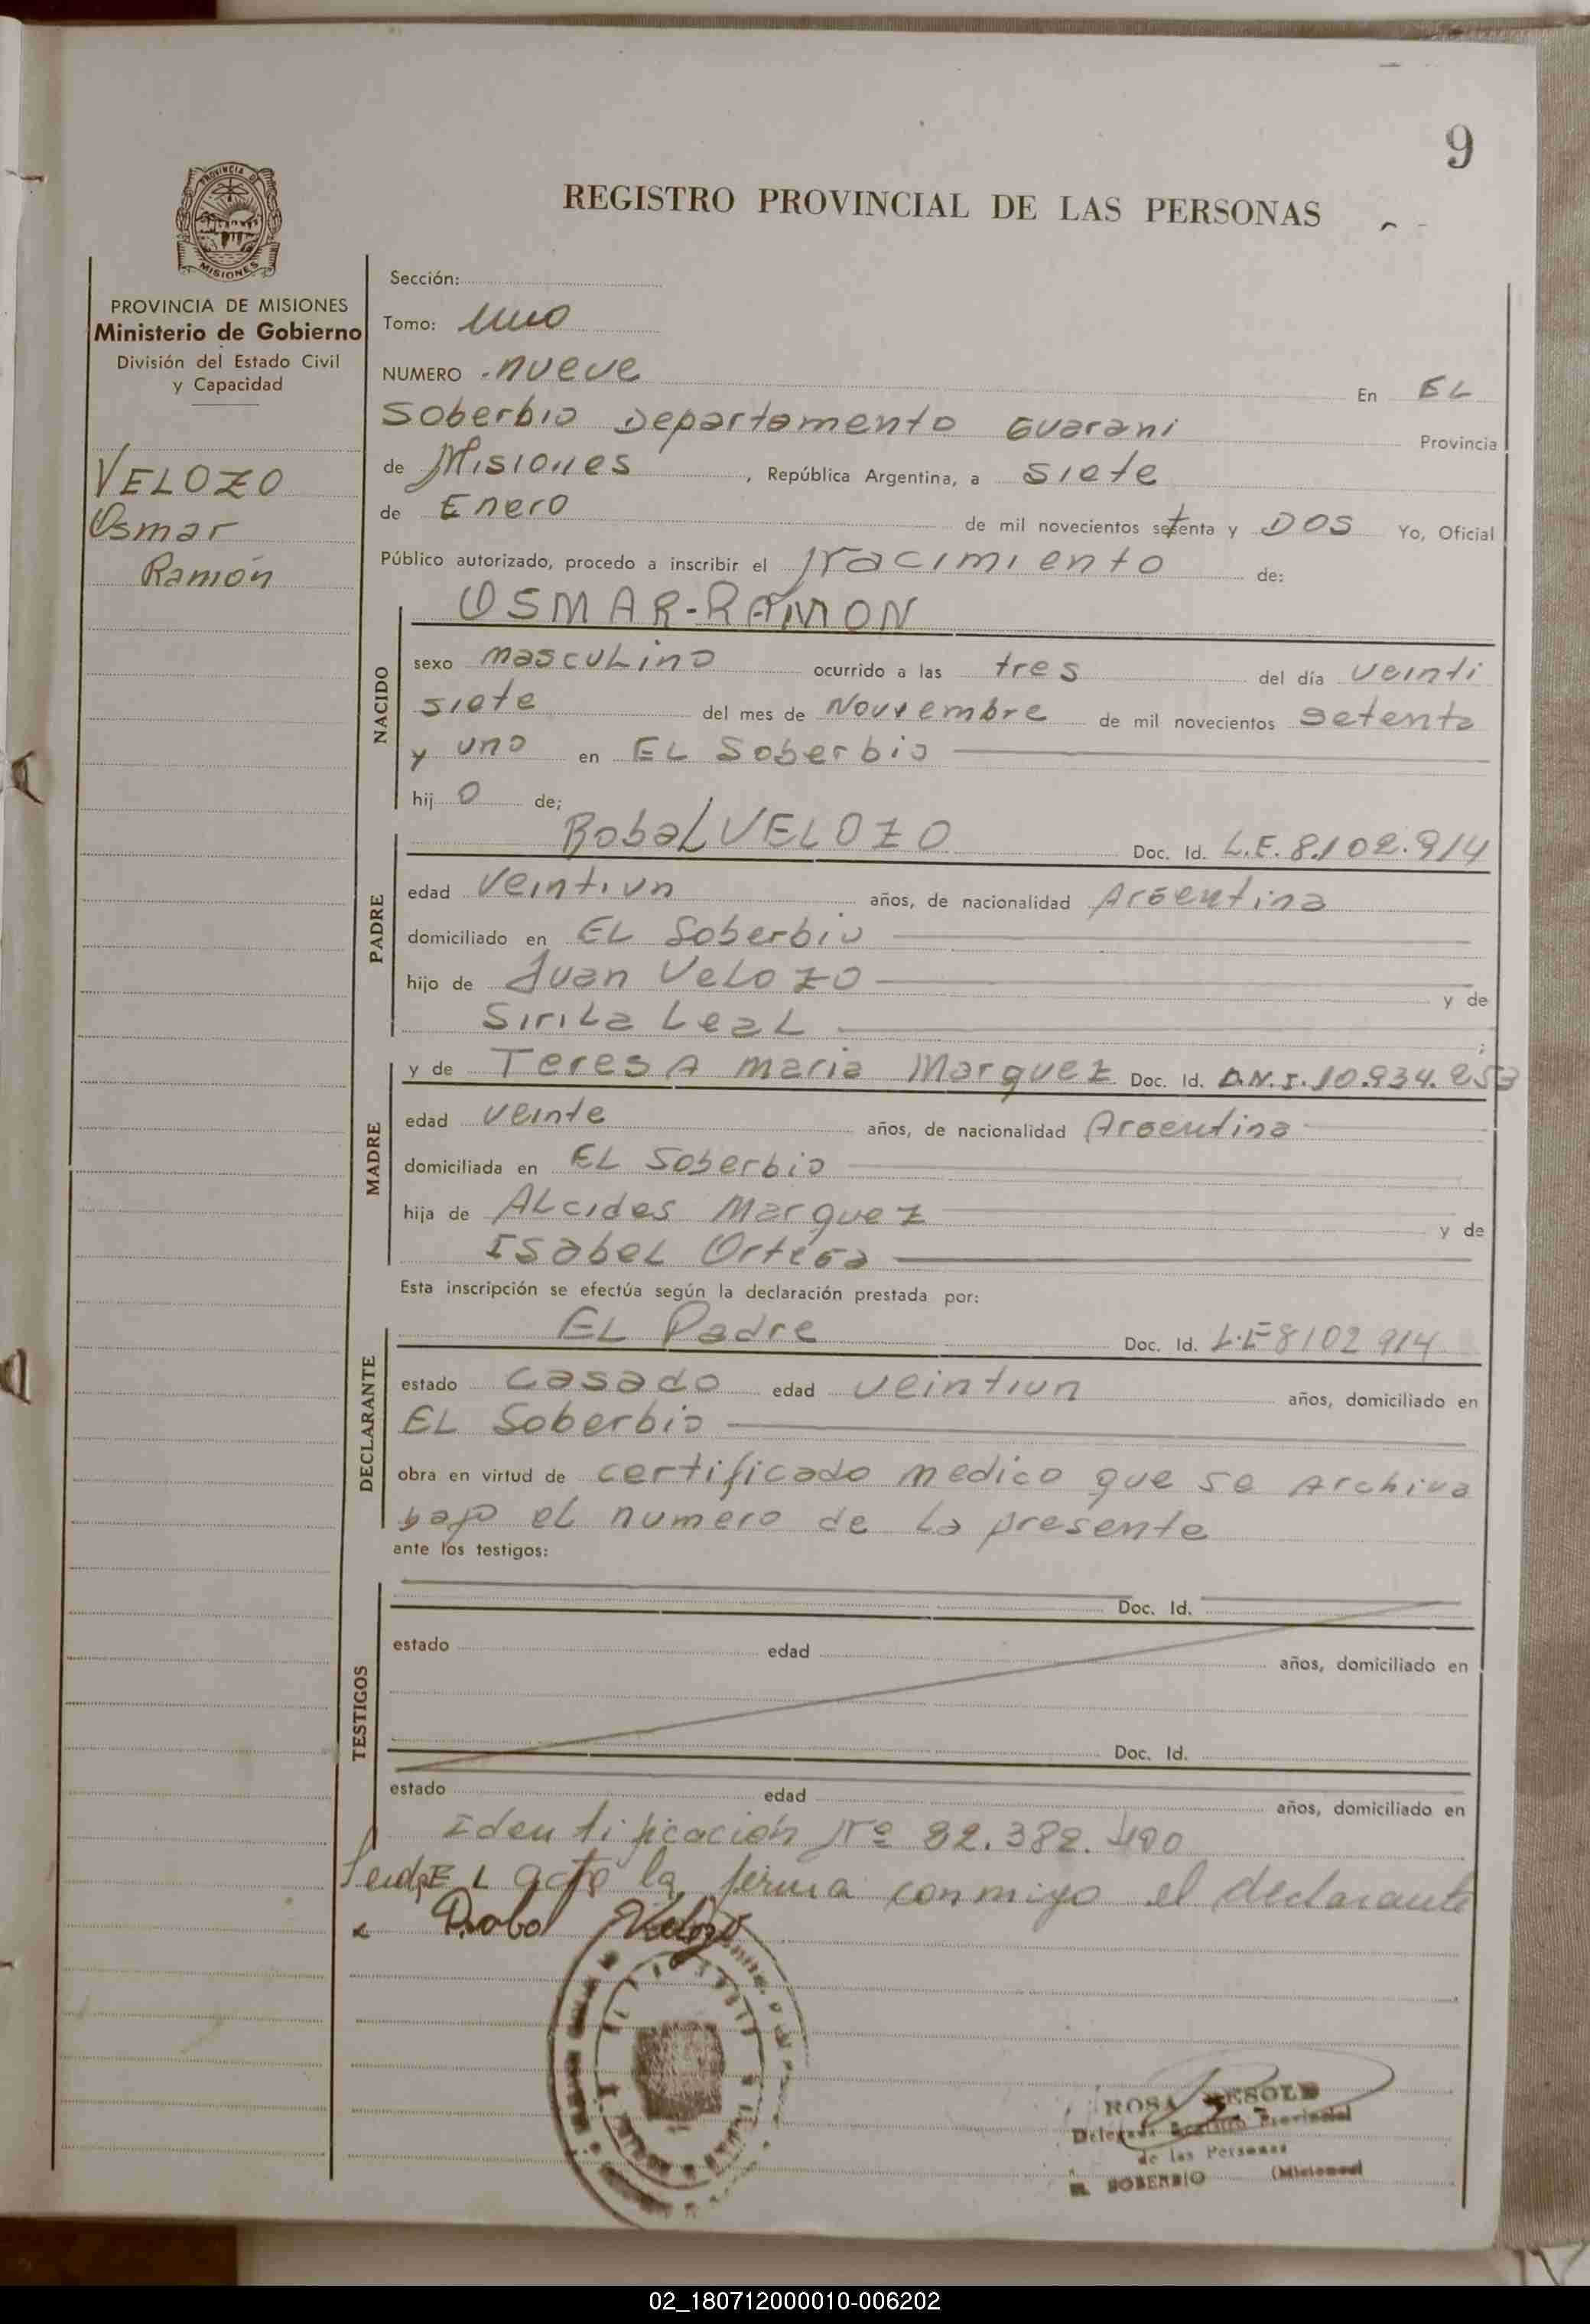 9
PROVINCIA DE
MISIONES
REGISTRO PROVINCIAL DE LAS PERSONAS
PROVINCIA DE MISIONES
Ministerio de Gobierno
División del Estado Civil
y Capacidad
VELOZO
Osmar
Ramón
Sección:
Tomo: Uno
NUMERO nueve En EL
Soberbio Departamento Guarani Provincia
de Misiones, República Argentina, a siete
de Enero de mil novecientos setenta y DOS Yo, Oficial
Público autorizado, procedo a inscribir el Nacimiento de:
OSMAR-RAMON
NACIDO
sexo masculino ocurrido a las tres del día veinti
siete del mes de Noviembre de mil novecientos setenta
y uno en EL Soberbio
hijo de;
PADRE
Robal VELOZO Doc. Id. L.E. 8.102.914
edad veintiun años, de nacionalidad Argentina
domiciliado en EL Soberbio
hijo de Juan Velozo y de
Sirila Leal ;
MADRE
y de Teresa maria Marquez Doc. Id. D.N.I. 10.934.253
edad veinte años, de nacionalidad Argentina
domiciliada en EL Soberbio
hija de ALcides Marquez y de
Isabel Ortega
Esta inscripción se efectúa según la declaración prestada por:
DECLARANTE
EL Padre Doc. Id. L.E 8102914
estado casado edad veintiun años, domiciliado en
EL Soberbio
obra en virtud de certificado medico que se archiva
bajo el numero de la presente
ante los testigos:
TESTIGOS
Doc. Id.
estado edad años, domiciliado en
Doc. Id.
estado edad años, domiciliado en
Identificación Nº 22.382.400
Leida EL acta la firma conmigo el declarante
Robal Velozo
ROSA
Delegada Registro Provincial
de las Personas
EL SOBERBIO (Misiones)
02_180712000010-006202